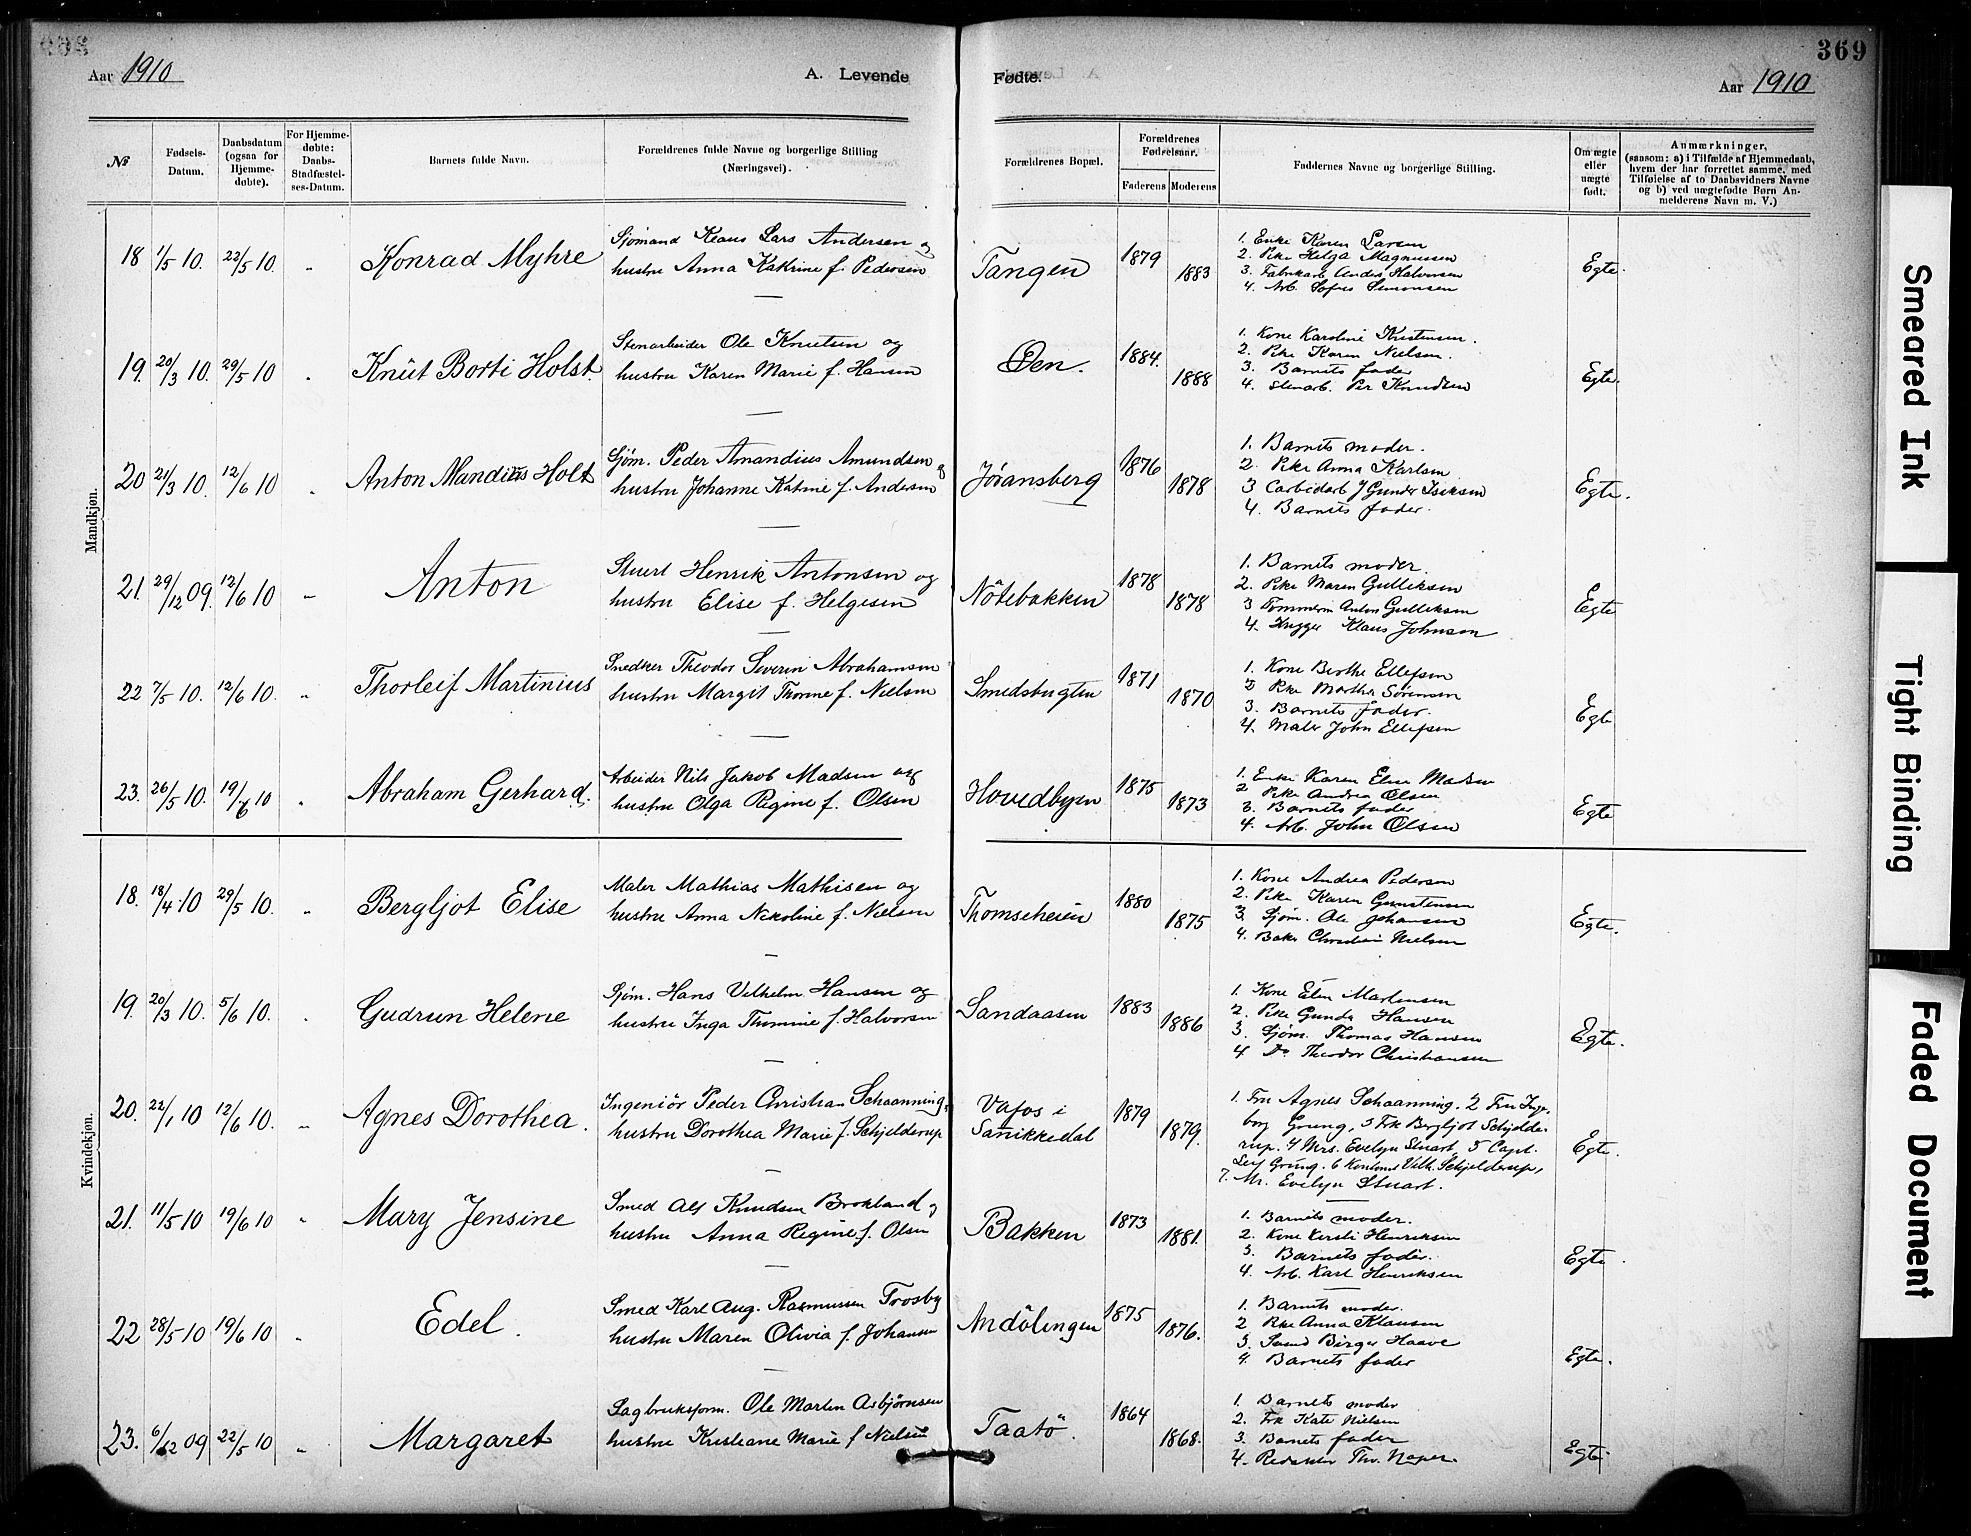 369
Aar 1910
A. Levende
Fødte.
Aar 1910
No
Fødsels-Datum.
Daabsdatum (ogsaa for Hjemme-døbte).
For Hjemme-døbte: Daabs-Stadfæstel-ses-Datum.
Barnets fulde Navn.
Forældrenes fulde Navne og borgerlige Stilling (Næringsvei).
Forældrenes Bopæl.
Forældrenes Fødselsaar.
Faderens Moderens
Faddernes Navne og borgerlige Stilling.
Om ægte eller uægte født.
Anmærkninger,
(saasom: a) i Tilfælde af Hjemmedaab,
hvem der har forrettet samme, med
Tilføielse af to Daabsvidners Navne
og b) ved uægtefødte Børn An-
melderens Navn m. V.)
Mandkjøn.
18 1/5 10. 22/5 10. " Konrad Myhre
Sjømand Klaus Lars Andersen og
hustru Anna Katrine f. Pedersen
Tangen 1879 1883
1. Enke Karen Larsen
2. Pike Helga Magnussen
3. Fabrikarb. Anders Halvorsen
4. Arb. Sofus Simonsen
Egte.
19. 20/3 10. 29/5 10 " Knut Borti Holst.
Stenarbeider Ole Knutsen og
hustru Karen Marie f. Hansen
Øen. 1884. 1888
1. Kone Karoline Kristensen.
2. Pike Karen Nielsen.
3. Barnets fader
4. Stenarb. Per Knudsen
Egte.
20 21/3 10. 12/6 10 " Anton Mandius Holt
Sjøm. Peder Amandius Amundsen og
hustru Johanne Katrine f. Andersen
Jøransberg 1876 1878
1. Barnets moder.
2. Pike Anna Karlsen
3 Carbidarb J Gunder Isaksen
4. Barnets fader.
Egte.
21. 29/12 09. 12/6 10 " Anton
Stuert Henrik Antonsen og
hustru Elise f. Helgesen
Nötebakken 1878 1878
1. Barnets moder.
2. Pike Maren Gulleksen
3 Tømmerm Anton Gulleksen
4. Hugger Klaus Johnsen
Egte
22 7/5 10. 12/6 10. " Thorleif Martinius
Snedker Theodor Severin Abrahamsen
hustru Margit Thorine f. Nielsen
Smedsbugten 1871 1870
1. Kone Berthe Ellefsen
2 Pike Martha Sørensen
3. Barnets fader.
4. Maler John Ellefsen
Egte
23. 26/5 10. 19/6 10 " Abraham Gerhard.
Arbeider Nils Jakob Madsen og
hustru Olga Regine f. Olsen
Hovedbyen 1875 1873
1. Enke Karen Elise Madsen
2 Pike Andrea Olsen
3. Barnets fader
4. Arb. John Olsen
Egte
Kvindekjøn.
18. 18/4 10 29/5 10. " Bergljot Elise
Maler Mathias Mathisen og
hustru Anna Nikoline f. Nielsen
Thomseheien 1880 1875
1. Kone Andrea Pedersen
2. Pike Karen Gunstensen
3. Sjøm. Ole Johansen
4. Baker Christian Nielsen
Egte.
19. 20/3 10. 5/6 10. " Gudrun Helene
Sjøm. Hans Vilhelm Hansen og
hustru Inga Thomine f. Halvorsen
Sandaasen 1883 1886
1. Kone Elen Martensen
2. Pike Gunda Hansen
3. Sjøm. Thomas Hansen
4 Do Theodor Christiansen
Egte.
20. 22/1 10 12/6 10. " Agnes Dorothea.
Ingeniör Peder Christian Schaanning,
hustru Dorothea Marie f. Schjelderup
Vafos i Sanikkedal 1879 1879.
1. Fru Agnes Schaanning. 2 Fru Inge-
borg Grung, 3 Frk Bergljot Schjelde-
rup. 4 Mrs. Evelyn Stuart, 5 Capt.
Leif Grüng. 6 Vilh. Schjelderup,
7. Mr. Evelyn Stuart.
Egte.
21. 11/5 10 19/6 10 " Mary Jensine
Smed Alf Knudsen Brokland og
hustru Anna Regine f. Olsen
Bakken 1873 1881.
1. Barnets moder.
2. Kone Kirsti Henriksen
3. Barnets fader.
4. Arb. Karl Henriksen
Egte.
22 28/5 10 19/6 10 " Edel.
Smed Karl Aug. Rasmussen Trosby
hustru Maren Olivia f. Johansen
Andölingen 1875 1876.
1. Barnets moder.
2 Pike Anna Klausen
3. Smed Birger Haave
4. Barnets fader
Egte.
23. 6/12 09 22/5 10 " Margaret
Sagbruksform. Ole Martin Asbjørnsen
hustru Kristiane Marie f Nielsen
Taatö. 1864 1868.
1. Barnets moder
2. Frk Kate Nielsen
3. Barnets fader
4. Redaktør Thv. Naper
Egte
Smeared Ink
Tight Binding
Faded Document